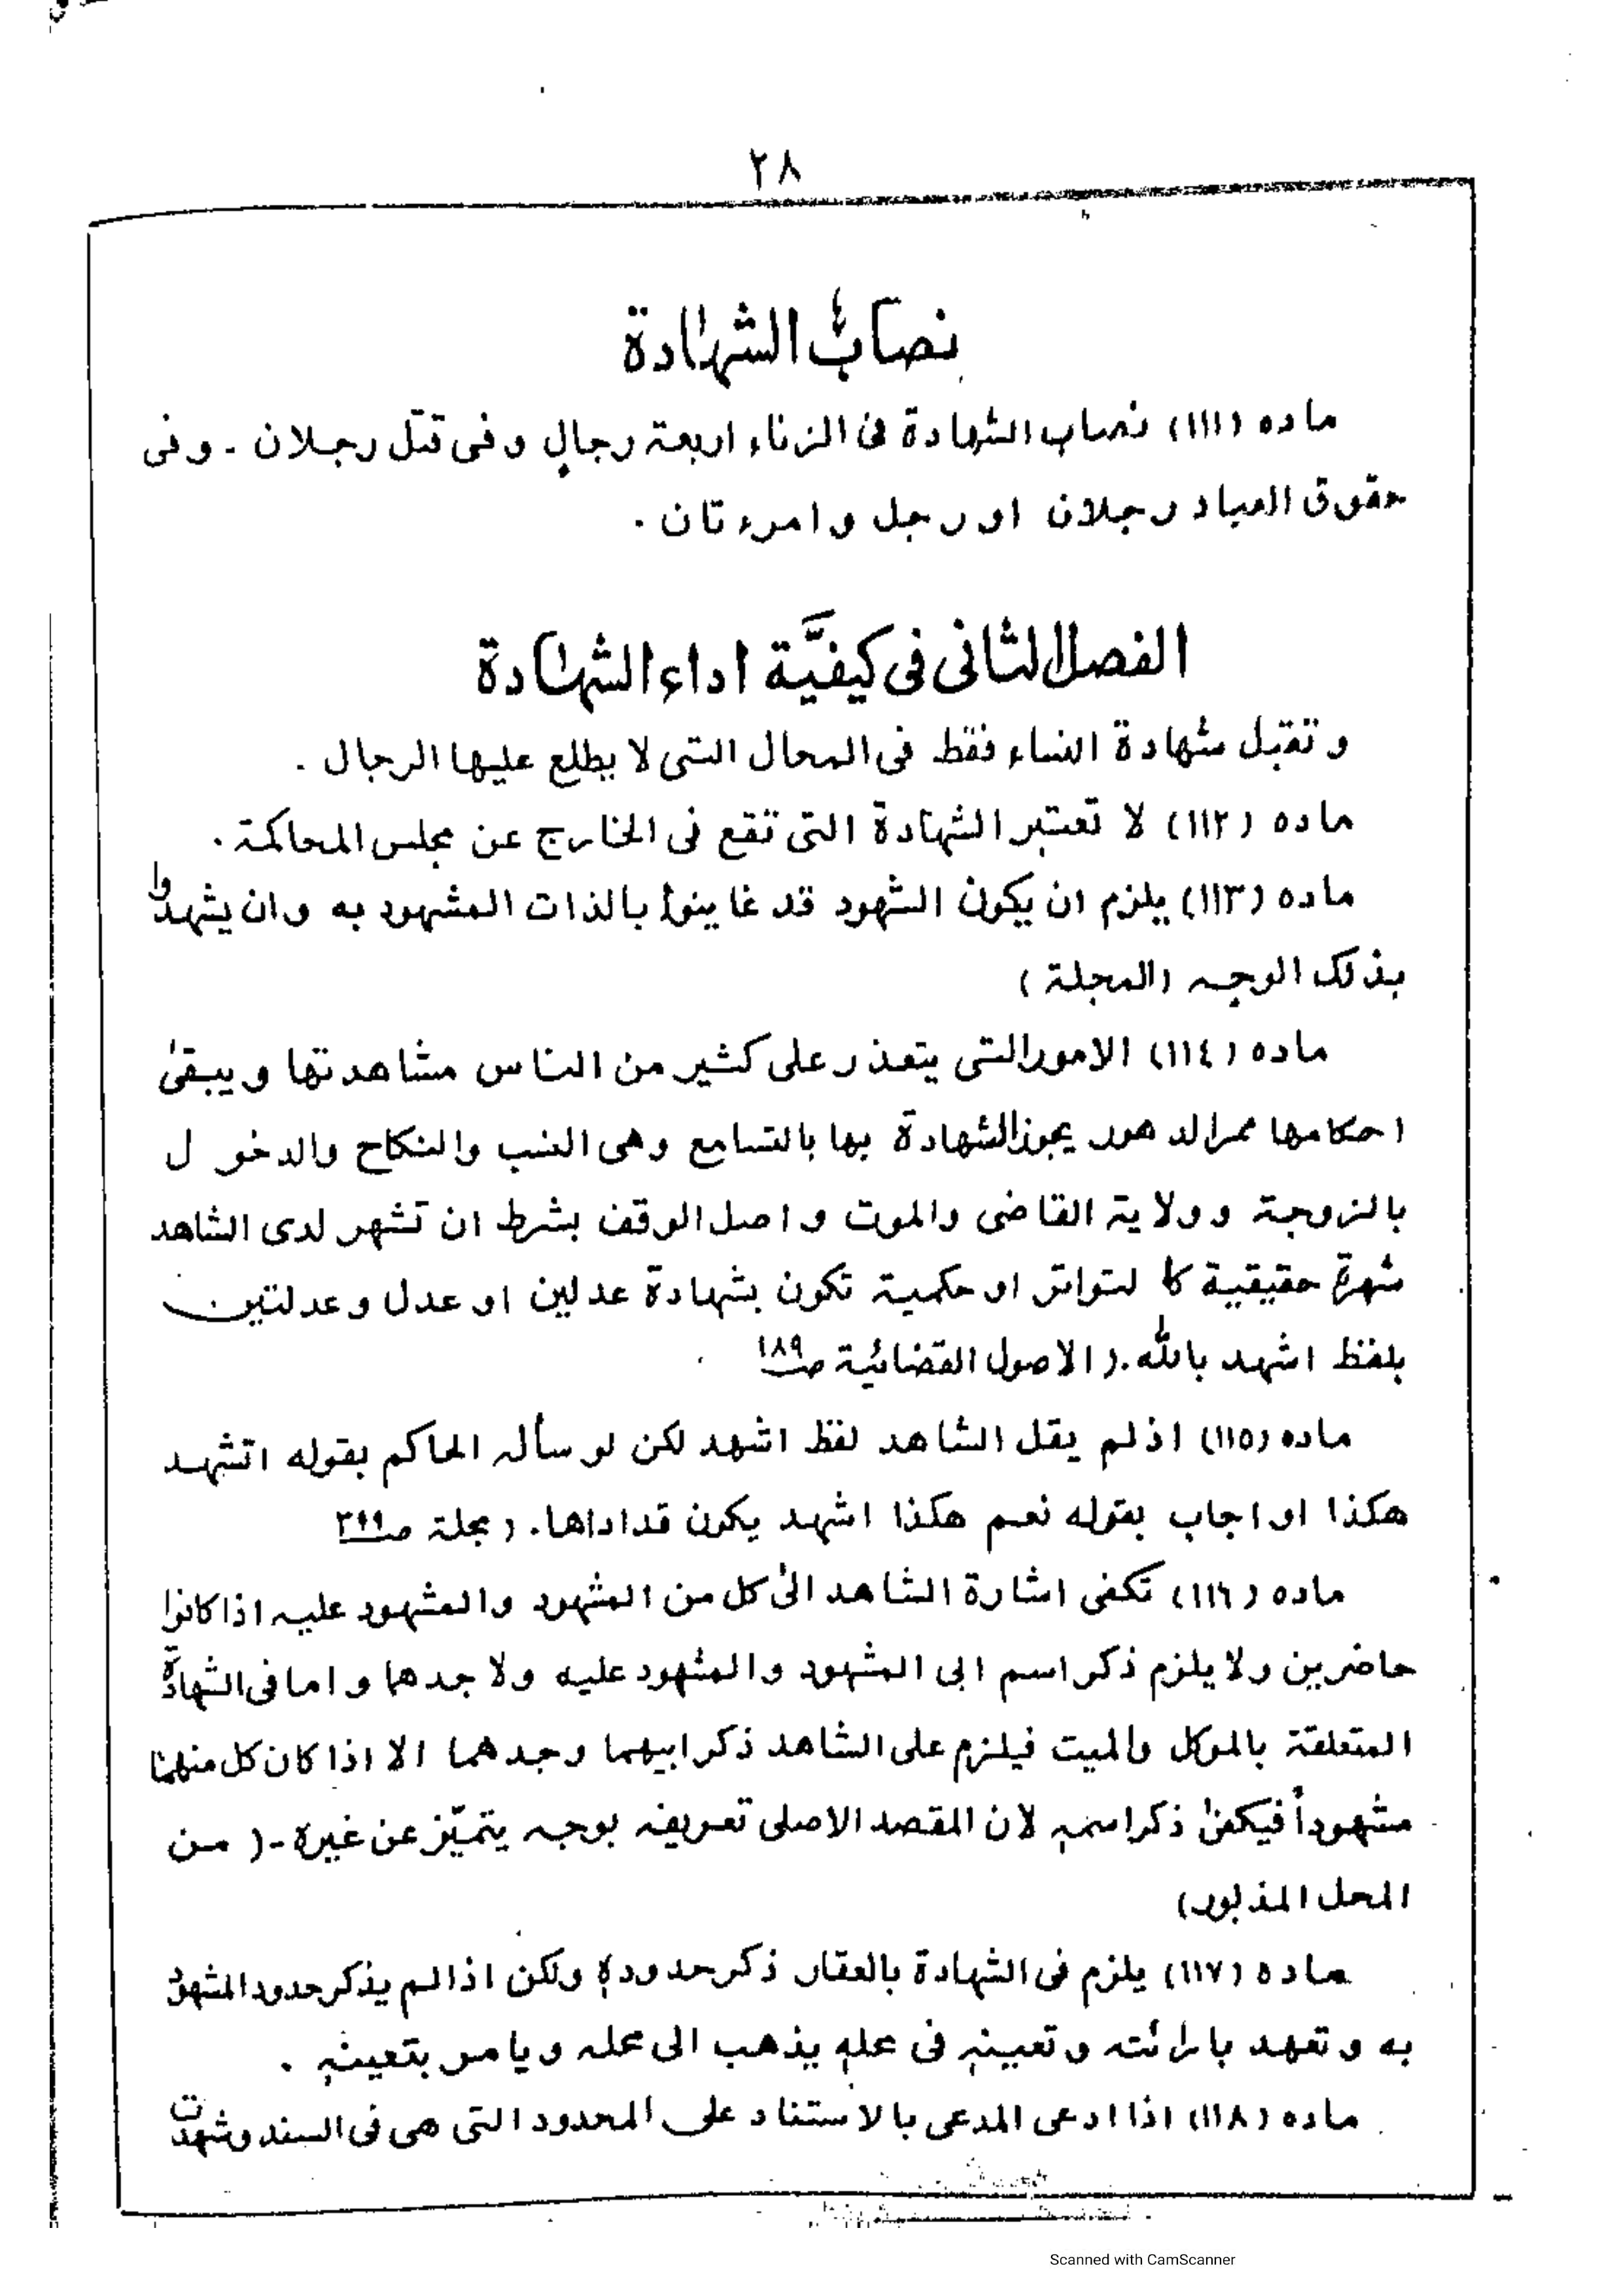 ٢٨
نصاب الشهادة
ماده (١١١) نصاب الشهادة فى الزناء اربعة رجالٍ و فى قتل رجلان ـ و فى
حقوق العباد رجلان او رجل و امرء تان ۰
الفصل الثانى فى كيفيَّة اداء الشهادة
و تقبل شهادة النساء فقط فى المحال التى لا يطلع عليها الرجال ۰
ماده (١١٢) لا تعتبر الشهادة التى تقع فى الخارج عن مجلس المحاكمة ۰
ماده (١١٣) يلزم ان يكون الشهود قد غاينوا بالذات المشهود به و ان يشهدوا
بذلك الوجه (المجلة)
ماده (١١٤) الامور التى يتعذر على كثير من الناس مشاهدتها و يبقىٰ
احكامها ممر الدهور يجوز الشهادة بها بالتسامع و هى النسب والنكاح والدخول
بالزوجة و ولاية القاضى والموت و اصل الوقف بشرط ان تشهر لدى الشاهد
شهرة حقيقية كا لتواتر او حكمية تكون بشهادة عدلين او عدل و عدلتين
بلفظ اشهد بالله ۰ (الاصول القضائية صـ ١٨٩
ماده (١١٥) اذ لم يقل الشاهد لفظ اشهد لكن لو سأله الحاكم بقوله اتشهد
هكذا او اجاب بقوله نعم هكذا اشهد يكون قد اداها ۰ (مجلة صـ
ماده (١١٦) تكفى اشارة الشاهد الىٰ كل من المشهود والمشهود عليه اذا كانوا
حاضرين و لا يلزم ذكر اسم ابى المشهود والمشهود عليه و لا جدهما و اما فى الشهادة
المتعلقة بالموكل والميت فيلزم على الشاهد ذكر ابيهما و جدهما الا اذا كان كل منهما
مشهوداً فيكفىٰ ذكر اسمه لان المقصد الاصلى تعريفه بوجه يتميّز عن غيره ـ (من
المحل المذبور)
ماده (١١٧) يلزم فى الشهادة بالعقار ذكر حدوده ولكن اذا لم يذكر حدود المشهود
به و تعهد بارائته و تعيينه فى محله يذهب الى محله و يامر بتعينه ۰
ماده (١١٨) اذا ادعى المدعى بالاستناد على المحدود التى هى فى السند و شهدت
Scanned with CamScanner